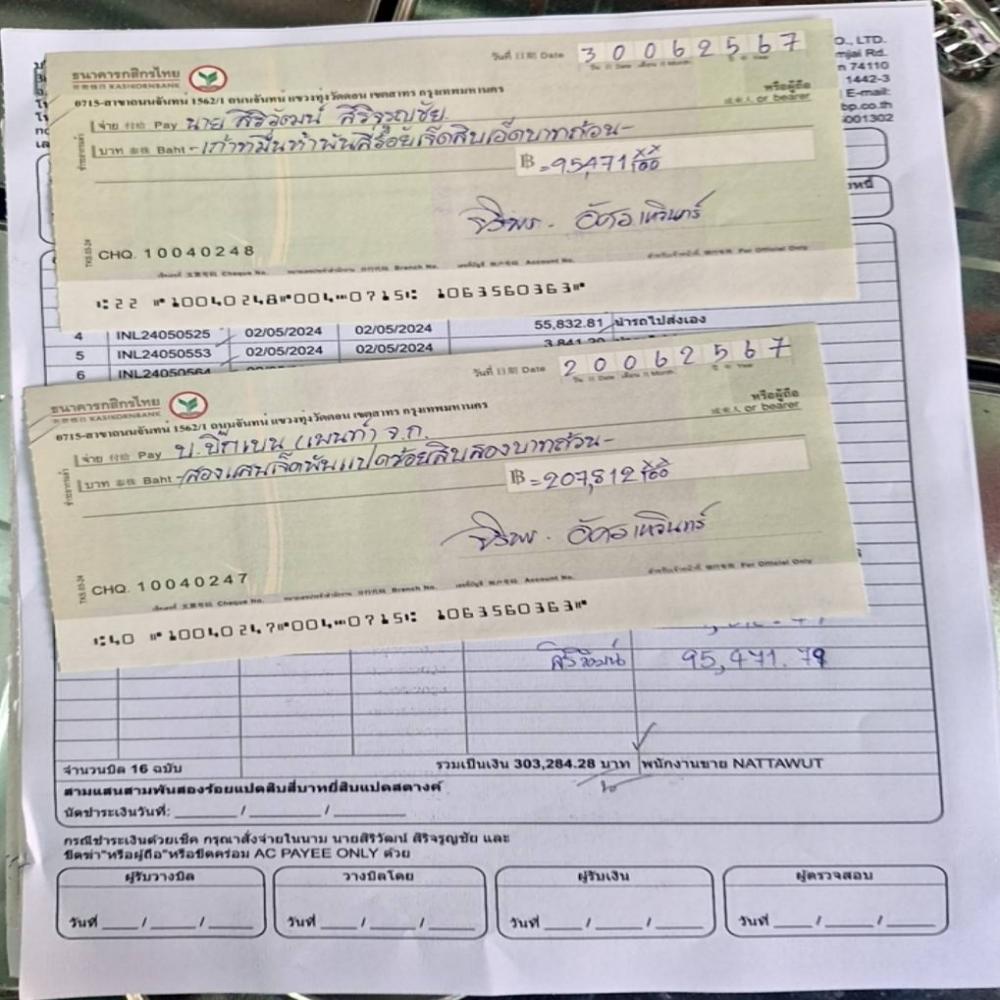 O., LTD.
mjai Rd.
n 74110
1442-3
E-mail:
bp.co.th
5001302
ธนาคารกสิกรไทย
KASIKORNBANK
วันที่ 日期 Date 30062567
0715-สาขาถนนจันทน์ 1562/1 ถนนจันทน์ แขวงทุ่งวัดดอน เขตสาทร กรุงเทพมหานคร
หรือผู้ถือ
或来人 or bearer
จ่าย 付给 Pay นาย สิริวัฒน์ สิริจรูญชัย
บาท 泰铢 Baht -เก้าหมื่นห้าพันสี่ร้อยเจ็ดสิบเอ็ดบาทถ้วน-
฿ =95,471 xx/100
CHQ. 10040248
Cheque No. Branch No. Account No. For Official Only
⑆22 ⑈10040248⑈004⑉0715⑆ 1063560363⑈
4 INL24050525 02/05/2024 02/05/2024 55,832.81 นำรถไปส่งเอง
5 INL24050553 02/05/2024 02/05/2024 3,841.30
6 INL24050564
ธนาคารกสิกรไทย
KASIKORNBANK
วันที่ 日期 Date 20062567
0715-สาขาถนนจันทน์ 1562/1 ถนนจันทน์ แขวงทุ่งวัดดอน เขตสาทร กรุงเทพมหานคร
หรือผู้ถือ
或来人 or bearer
จ่าย 付给 Pay บ.บิ๊กเบน เพนท์ จ.ก.
บาท 泰铢 Baht -สองแสนเจ็ดพันแปดร้อยสิบสองบาทถ้วน-
฿ =207,812 xx/100
CHQ. 10040247
Cheque No. Branch No. Account No. For Official Only
⑆40 ⑈10040247⑈004⑉0715⑆ 1063560363⑈
สิริวัฒน์ 95,471.79
จำนวนบิล 16 ฉบับ รวมเป็นเงิน 303,284.28 บาท พนักงานขาย NATTAWUT
สามแสนสามพันสองร้อยแปดสิบสี่บาทยี่สิบแปดสตางค์
นัดชำระเงินวันที่: / /
กรณีชำระเงินด้วยเช็ค กรุณาสั่งจ่ายในนาม นายสิริวัฒน์ สิริจรูญชัย และ
ขีดฆ่า"หรือผู้ถือ"หรือขีดคร่อม AC PAYEE ONLY ด้วย
ผู้รับวางบิล วางบิลโดย ผู้รับเงิน ผู้ตรวจสอบ
วันที่ / / วันที่ / / วันที่ / / วันที่ / /